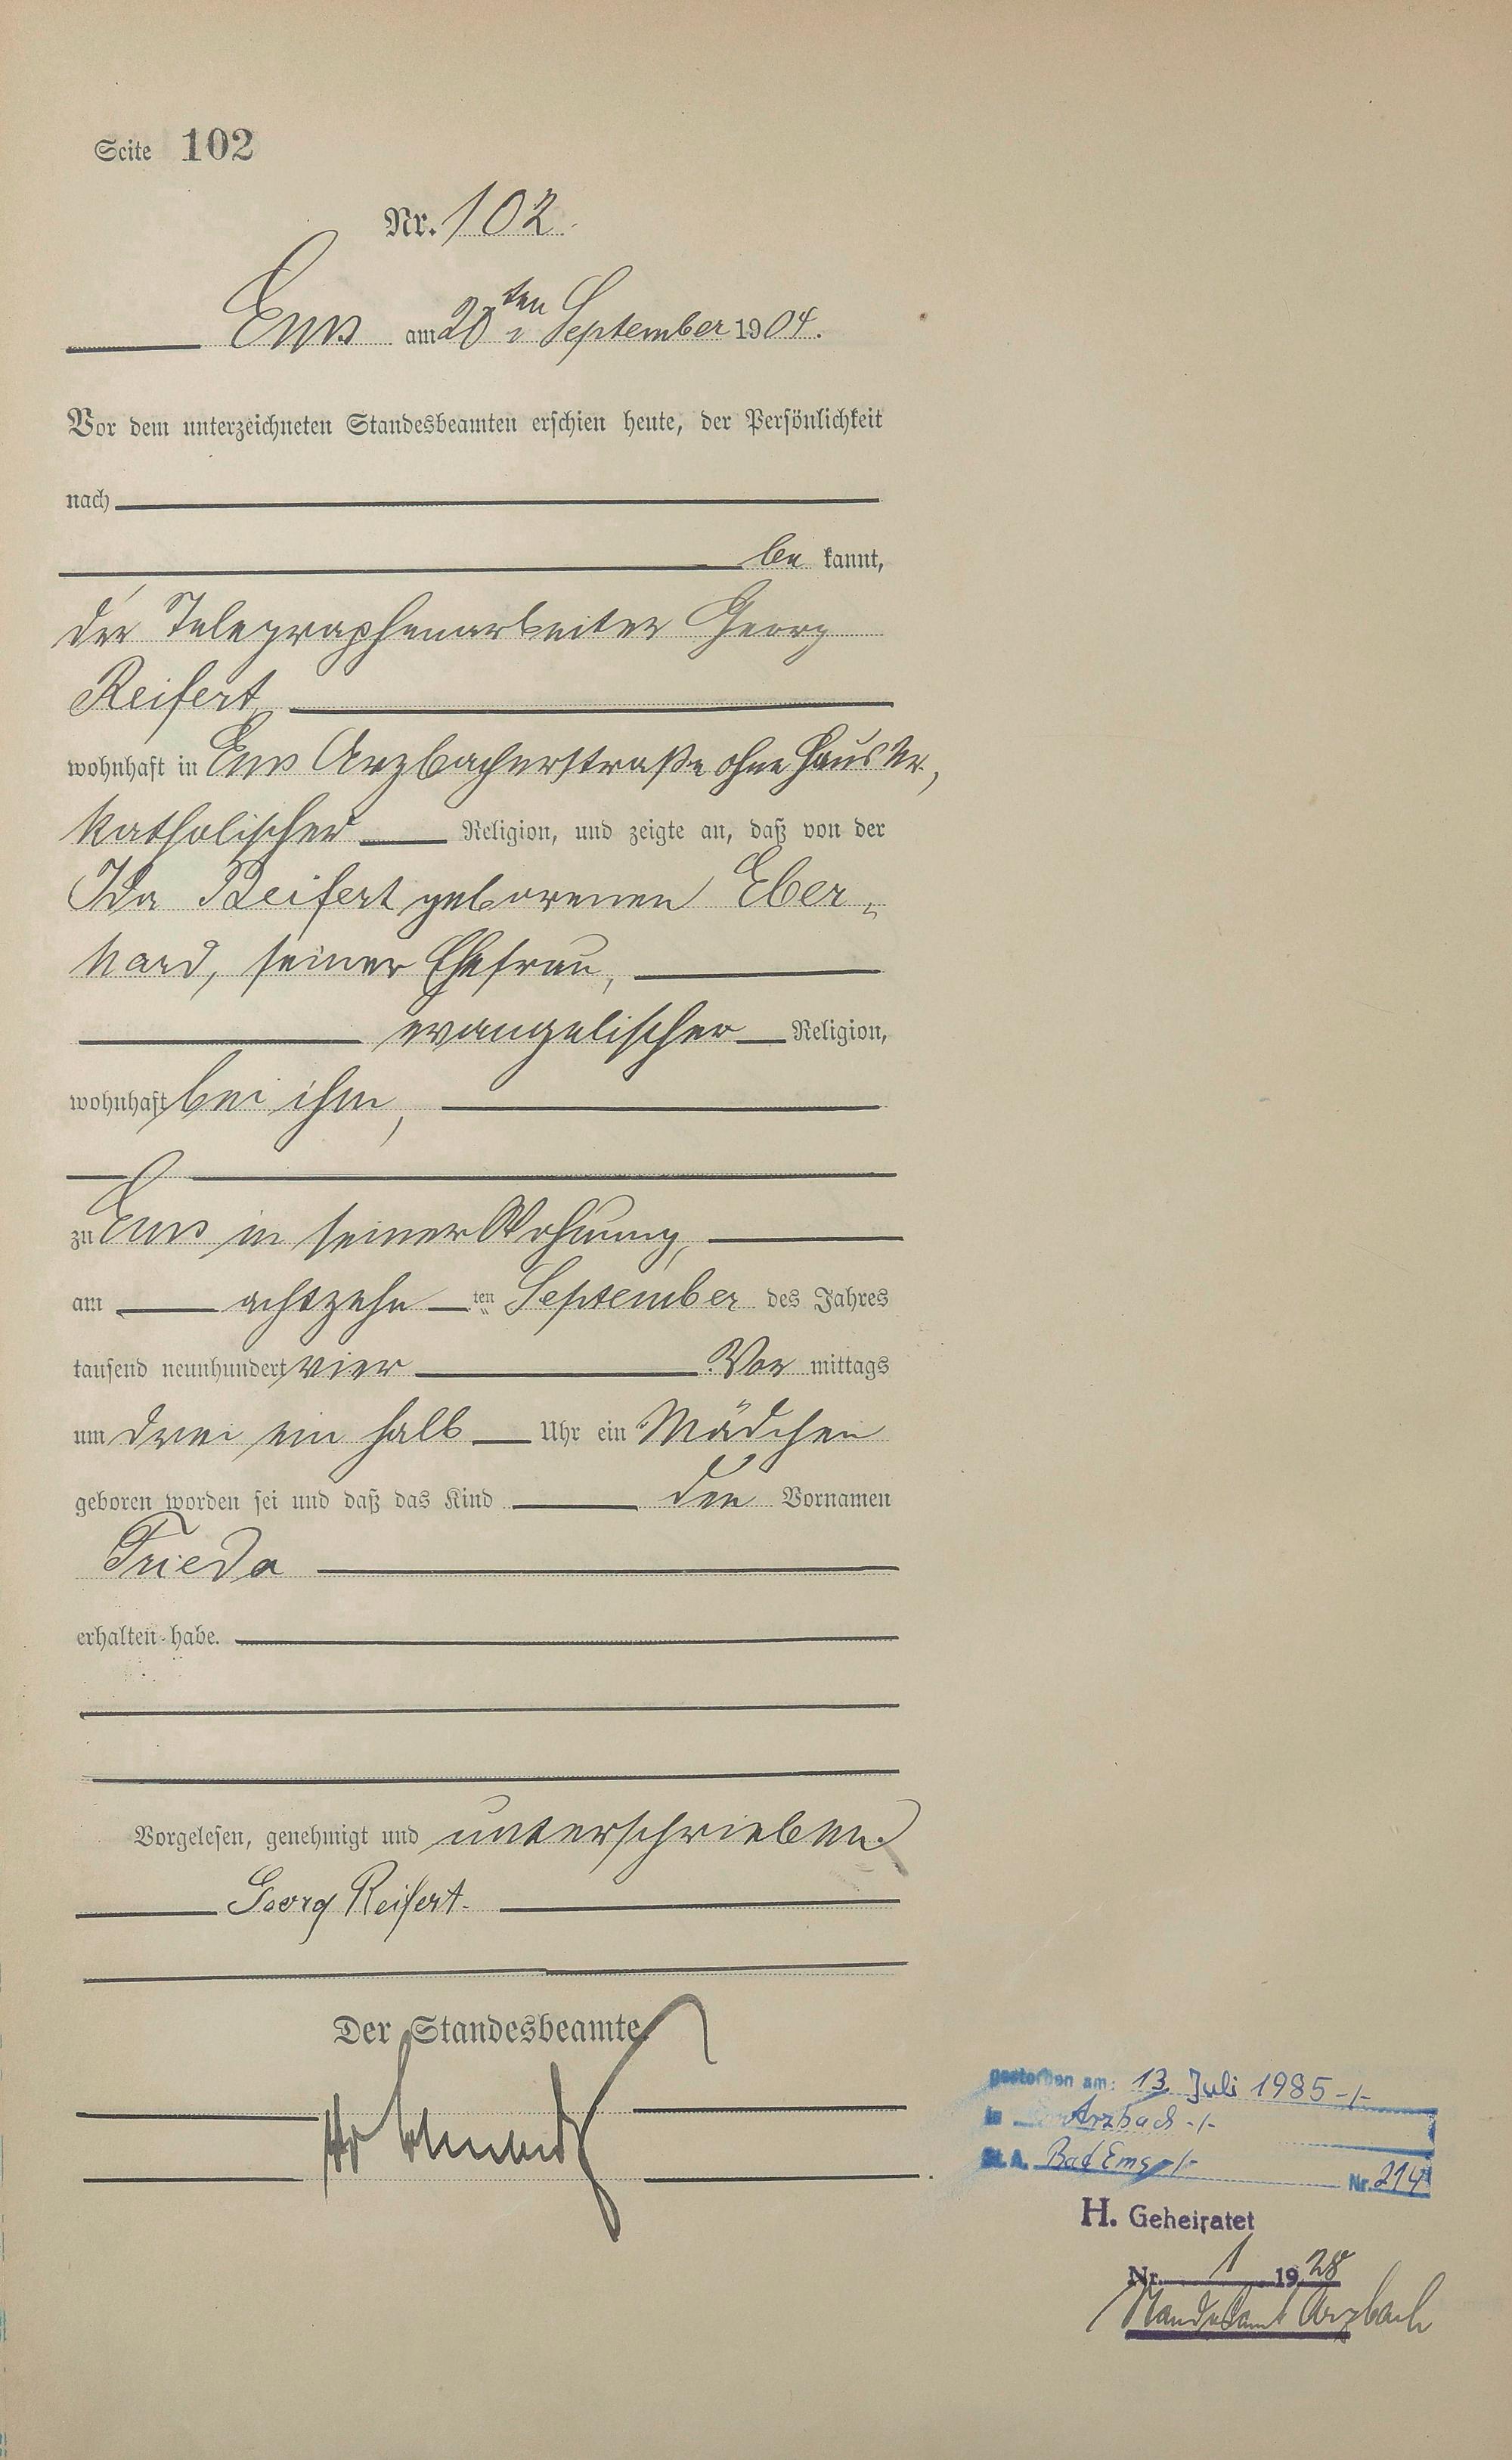 Seite 102
Nr. 102.
Ems am 20ten September 1904.
Vor dem unterzeichneten Standesbeamten erschien heute, der Persönlichkeit
nach
be kannt,
der Telegraphenarbeiter Georg
Reifert,
wohnhaft in Ems Arzbacherstraße ohne Haus Nr.,
katholischer Religion, und zeigte an, daß von der
Ida Reifert geborenen Eber-
hard, seiner Ehefrau,
evangelischer Religion,
wohnhaft bei ihm,
zu Ems in seiner Wohnung,
am achtzehn ten September des Jahres
tausend neunhundert vier Vor mittags
um drei ein halb Uhr ein Mädchen
geboren worden sei und daß das Kind den Vornamen
Frieda
erhalten habe.
Vorgelesen, genehmigt und unterschrieben.
Georg Reifert.
Der Standesbeamte.
gestorben am: 13. Juli 1985 -/-
in Arzbach -/-
St. A. Bad Ems -/- Nr. 214
H. Geheiratet
Nr. 1 1928
Standesamt Arzbach